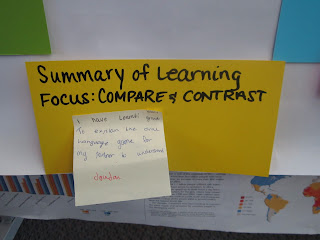 Summary of Learning
FOCUS: COMPARE & CONTRAST
I have learnt
To explain the
language game for
my partner to understand
Jordan